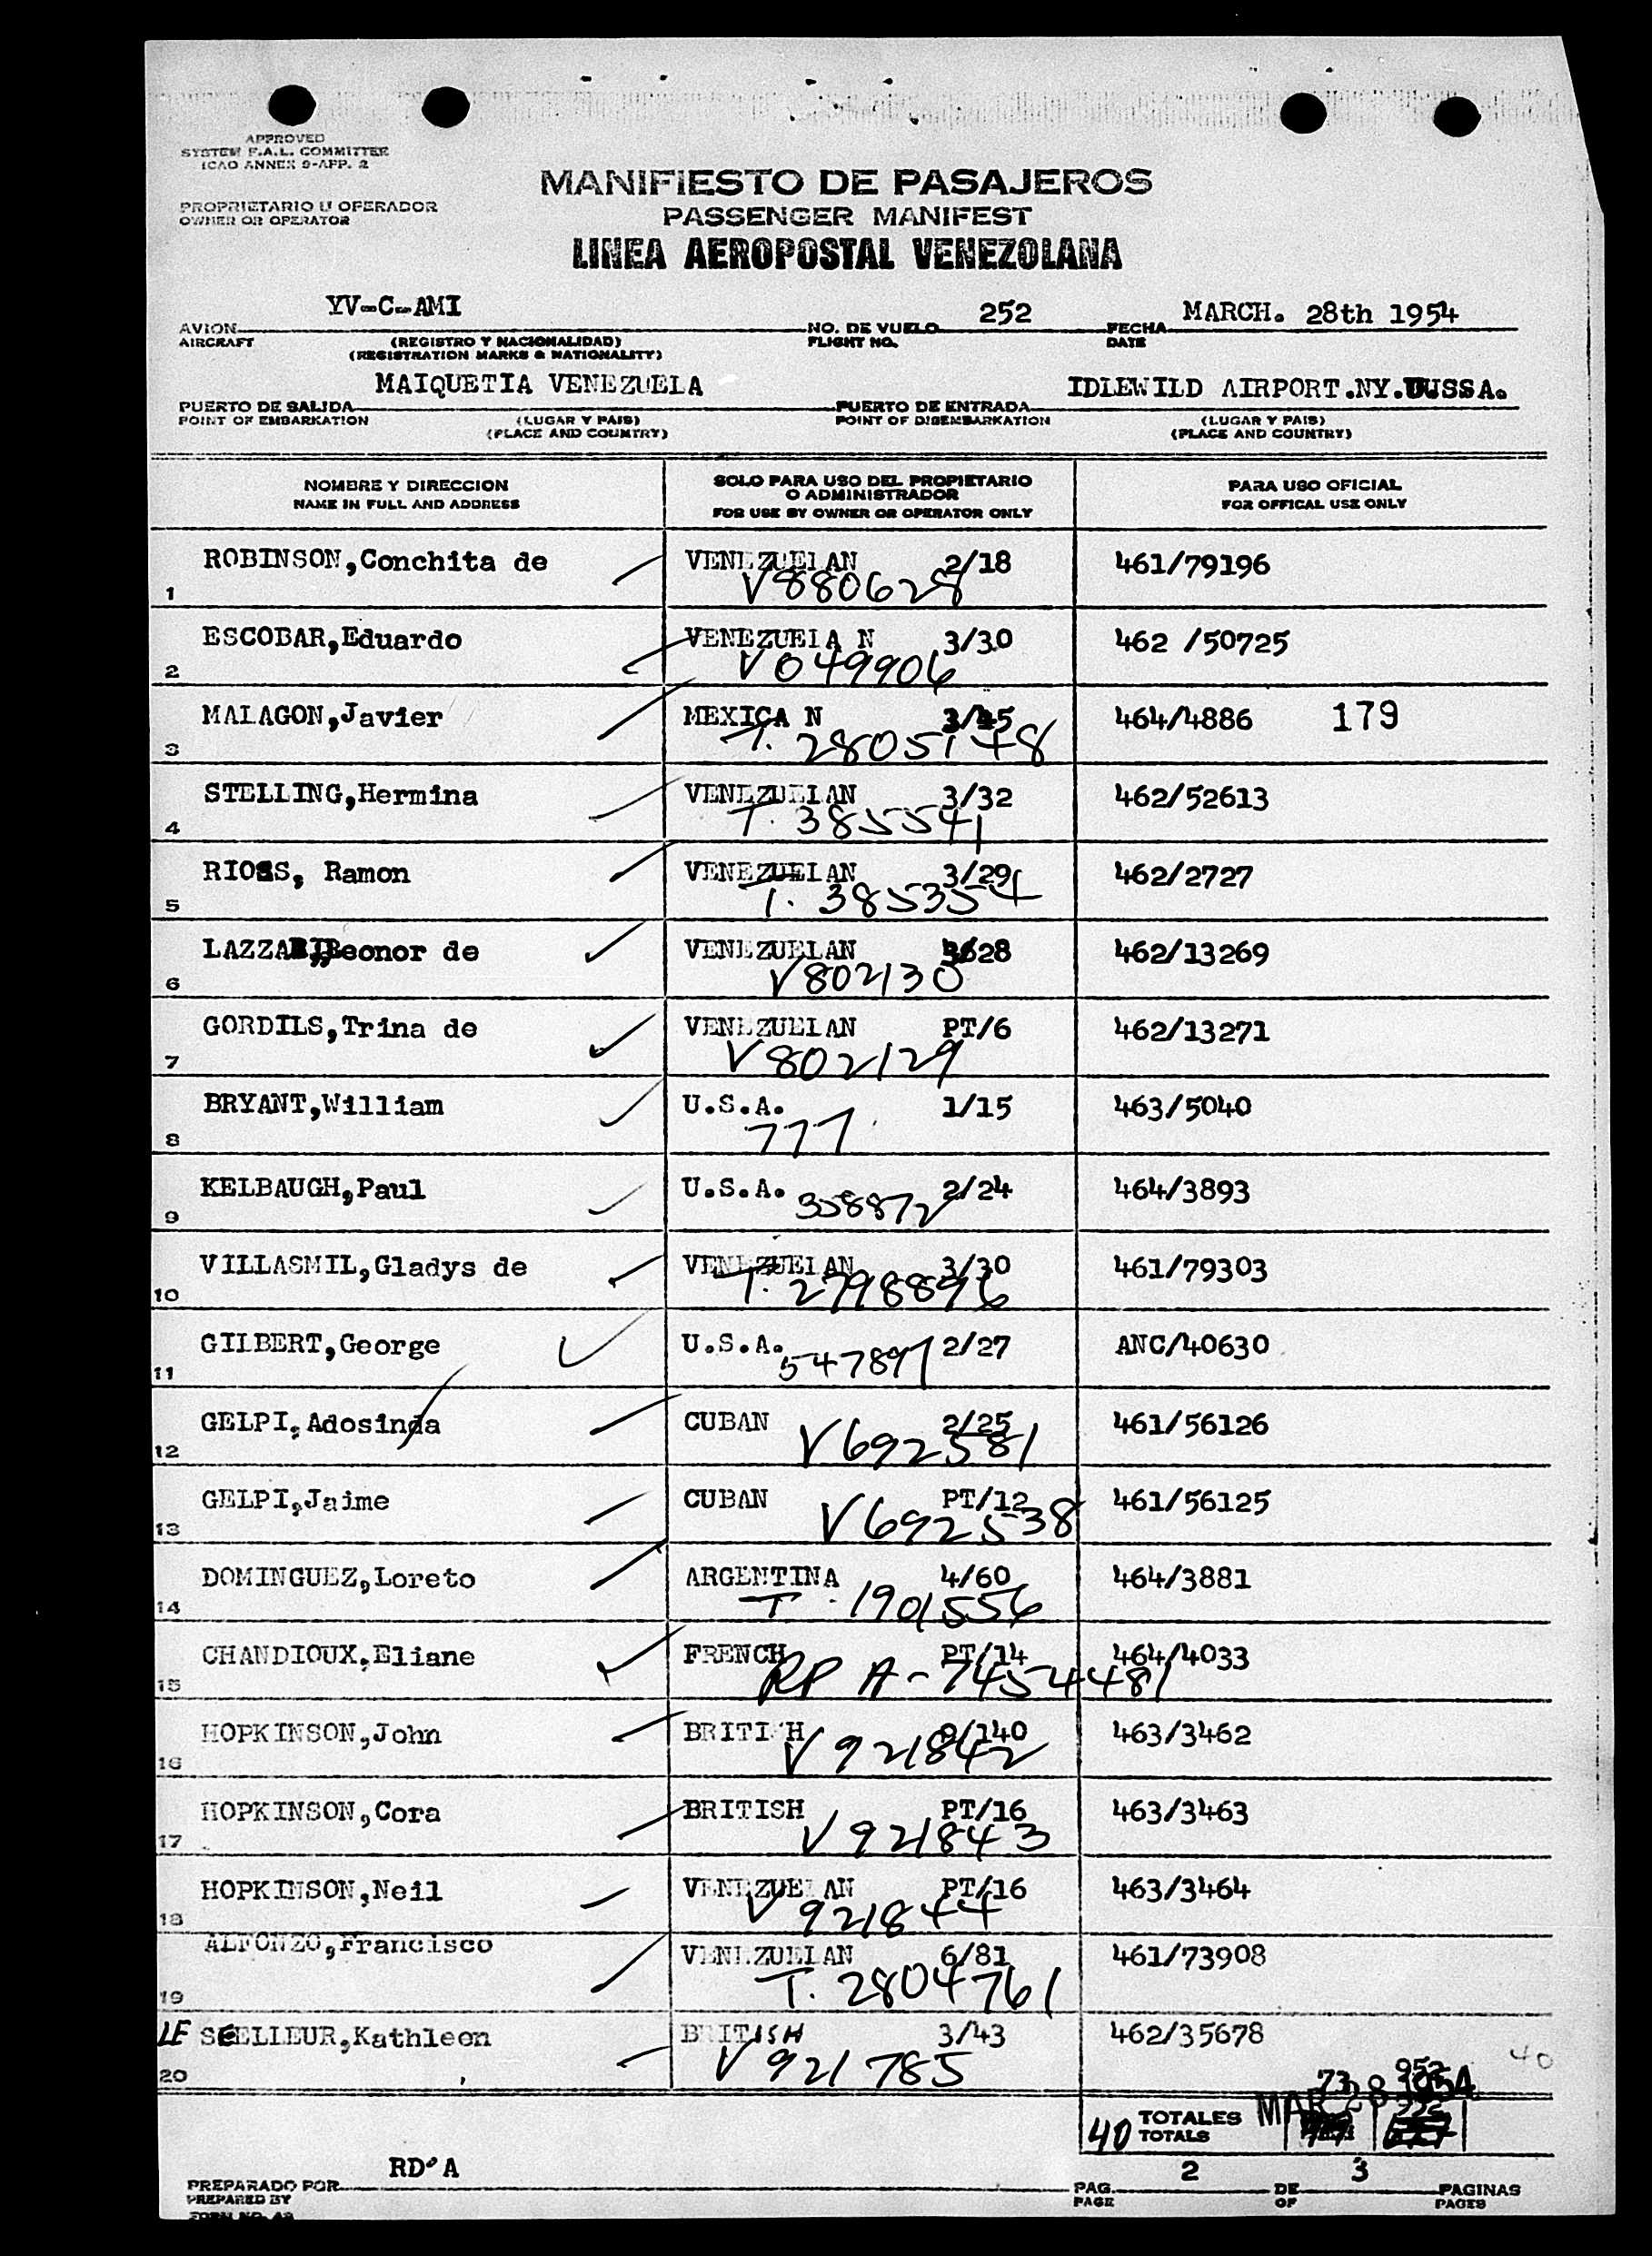 APPROVED
SYSTEM F.A.L. COMMITTEE
ICAO ANNEX 9-APP. 2
PROPRIETARIO U OPERADOR
OWNER OR OPERATOR
MANIFIESTO DE PASAJEROS
PASSENGER MANIFEST
LINEA AEROPOSTAL VENEZOLANA
YV-C-AMI 252 MARCH. 28th 1954
AVION NO. DE VUELO FECHA
AIRCRAFT (REGISTRO Y NACIONALIDAD) FLIGHT NO. DATE
(REGISTRATION MARKS & NATIONALITY)
MAIQUETIA VENEZUELA IDLEWILD AIRPORT.NY.UUSSA.
PUERTO DE SALIDA PUERTO DE ENTRADA
POINT OF EMBARKATION (LUGAR Y PAIS) POINT OF DISEMBARKATION (LUGAR Y PAIS)
(PLACE AND COUNTRY) (PLACE AND COUNTRY)
NOMBRE Y DIRECCION SOLO PARA USO DEL PROPIETARIO PARA USO OFICIAL
O ADMINISTRADOR
NAME IN FULL AND ADDRESS FOR USE BY OWNER OR OPERATOR ONLY FOR OFFICAL USE ONLY
ROBINSON,Conchita de VENEZUELAN 2/18 461/79196
1 V880628
ESCOBAR,Eduardo VENEZUELA N 3/30 462 /50725
2 V049906
MALAGON,Javier MEXICA N 3/45 464/4886 179
3 T. 2805148
STELLING,Hermina VENEZUELAN 3/32 462/52613
4 T. 385541
RIOSS, Ramon VENEZUELAN 3/29 462/2727
5 T. 385354
LAZZARI,Leonor de VENEZUELAN 3628 462/13269
6 V802130
GORDILS,Trina de VENEZUELAN PT/6 462/13271
7 V802129
BRYANT,William U.S.A. 1/15 463/5040
8 777
KELBAUGH,Paul U.S.A. 2/24 464/3893
9 358872
VILLASMIL,Gladys de VENEZUELAN 3/30 461/79303
10 T. 2798896
GILBERT,George U.S.A. 2/27 ANC/40630
11 547897
GELPI,Adosinda CUBAN 2/25 461/56126
12 V692581
GELPI,Jaime CUBAN PT/12 461/56125
13 V692538
DOMINGUEZ,Loreto ARGENTINA 4/60 464/3881
14 T. 1901556
CHANDIOUX,Eliane FRENCH PT/14 464/4033
15 RP A-7454481
HOPKINSON,John BRITISH 8/140 463/3462
16 V921842
HOPKINSON,Cora BRITISH PT/16 463/3463
17 V921843
HOPKINSON,Neil VENEZUELAN PT/16 463/3464
18 V921844
ALFONZO,Francisco VENEZUELAN 6/81 461/73908
19 T. 2804761
LE SEELLEUR,Kathleen BRITISH 3/43 462/35678
20 V921785 40
73 952
MAR 28 1954
40 TOTALES
TOTALS
RD'A 2 3
PREPARADO POR PAG. DE PAGINAS
PREPARED BY PAGE OF PAGES